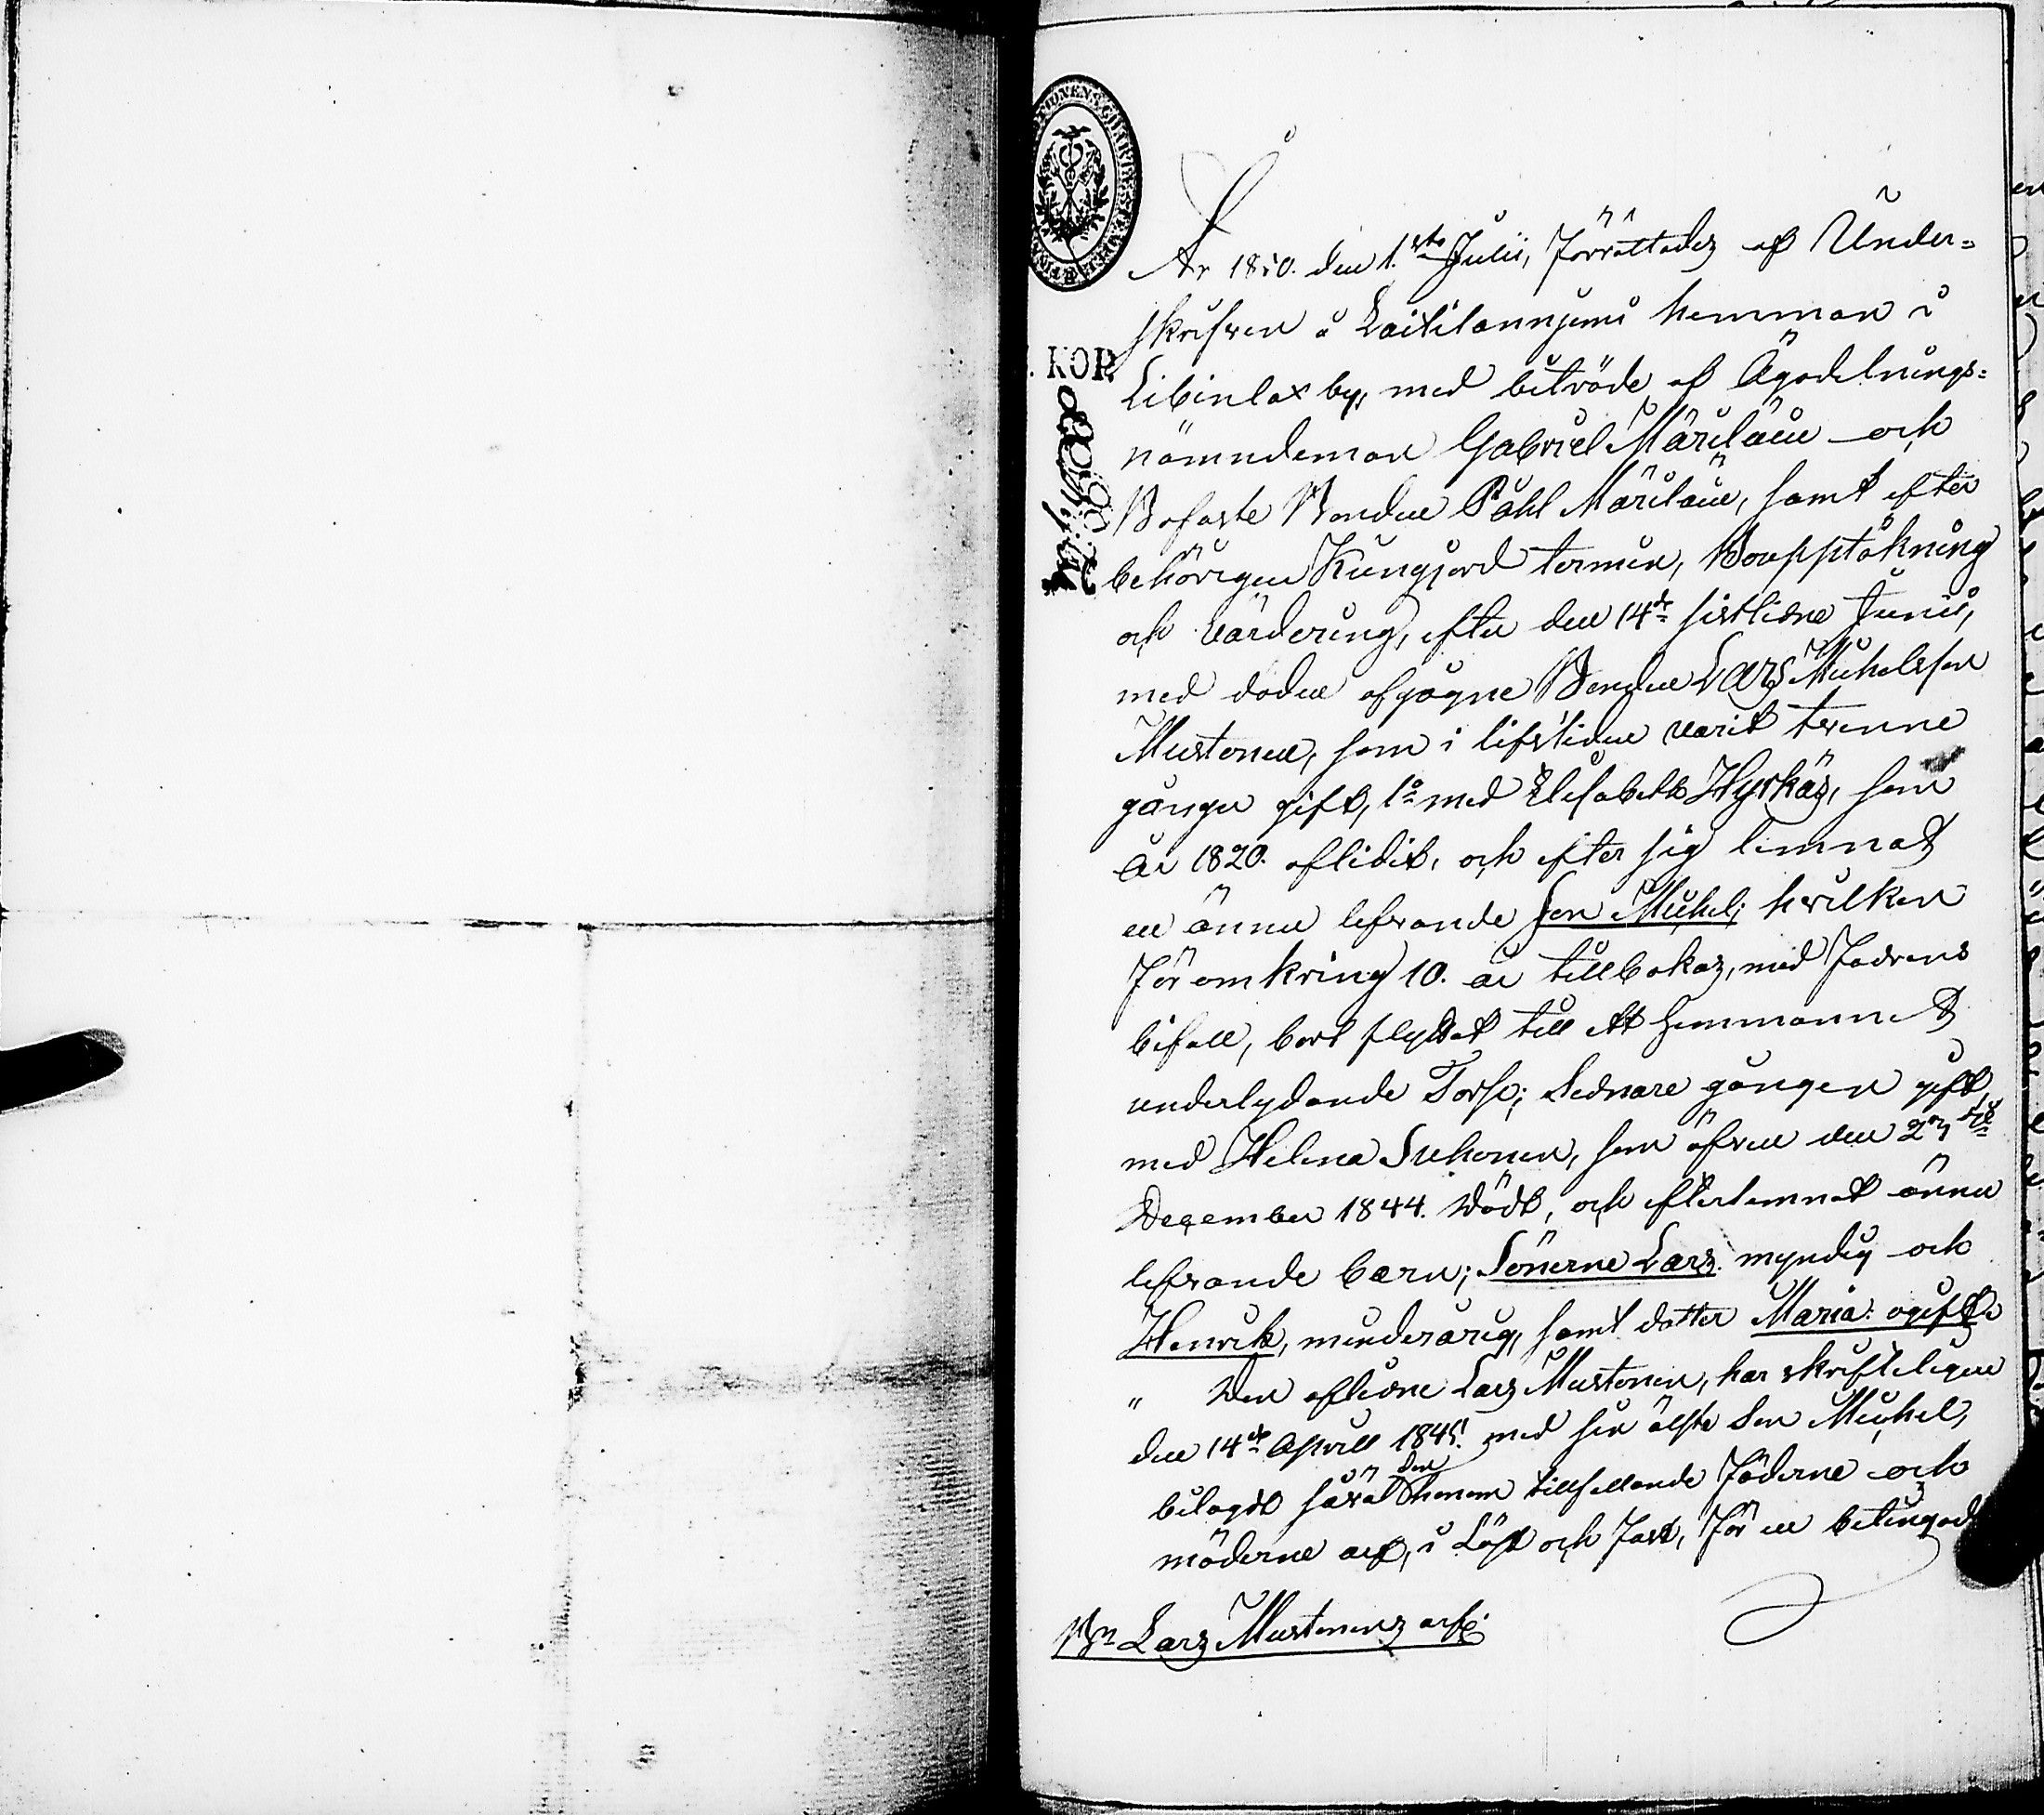 År 1850. den 1.sta Julii, Förrättades af Under=
skrifven å Laitilanniemi hemman i
Libinlax by, med biträde af Ägodelnings=
nämndeman Gabriel Märiläin och
Bofaste Bonden Påhl Märiläin, samt efter
behörigen Kungjord termin, Bouppteckning
och värdering, efter den 14de sistlidne Junii,
med döden afgågne Bonden Lars Michelsson
Mustonen, som i lifstiden varit trenne
gånger gift, 1o med Elisabeth Hyrkäs, som
år 1820. aflidit, och efter sig lemnat
en ännu lefvande Son Michel; hvilken
för omkring 10. år tillbakas, med Fadrens
bifall, bort flyttat till ett hemmanet
underlydande Torp; Sednare gången gift
med Helena Suhonen, som äfven den 27de
December 1844. Dödt, och efterlemnat ännu
lefvande barn; Sönerne Lars. myndig och
Henrik, minderårig, samt dotter Maria: ogift
" Den aflidne Lars Mustonen, har skrifteligen
den 14de Aprill 1845. med sin älste Son Michel,
bilagdt såväl den honom tillfallande Fäderne och
möderne arf, i Löst och Fast, för en betingad
KOP
Bn Lars Mustonens arf.